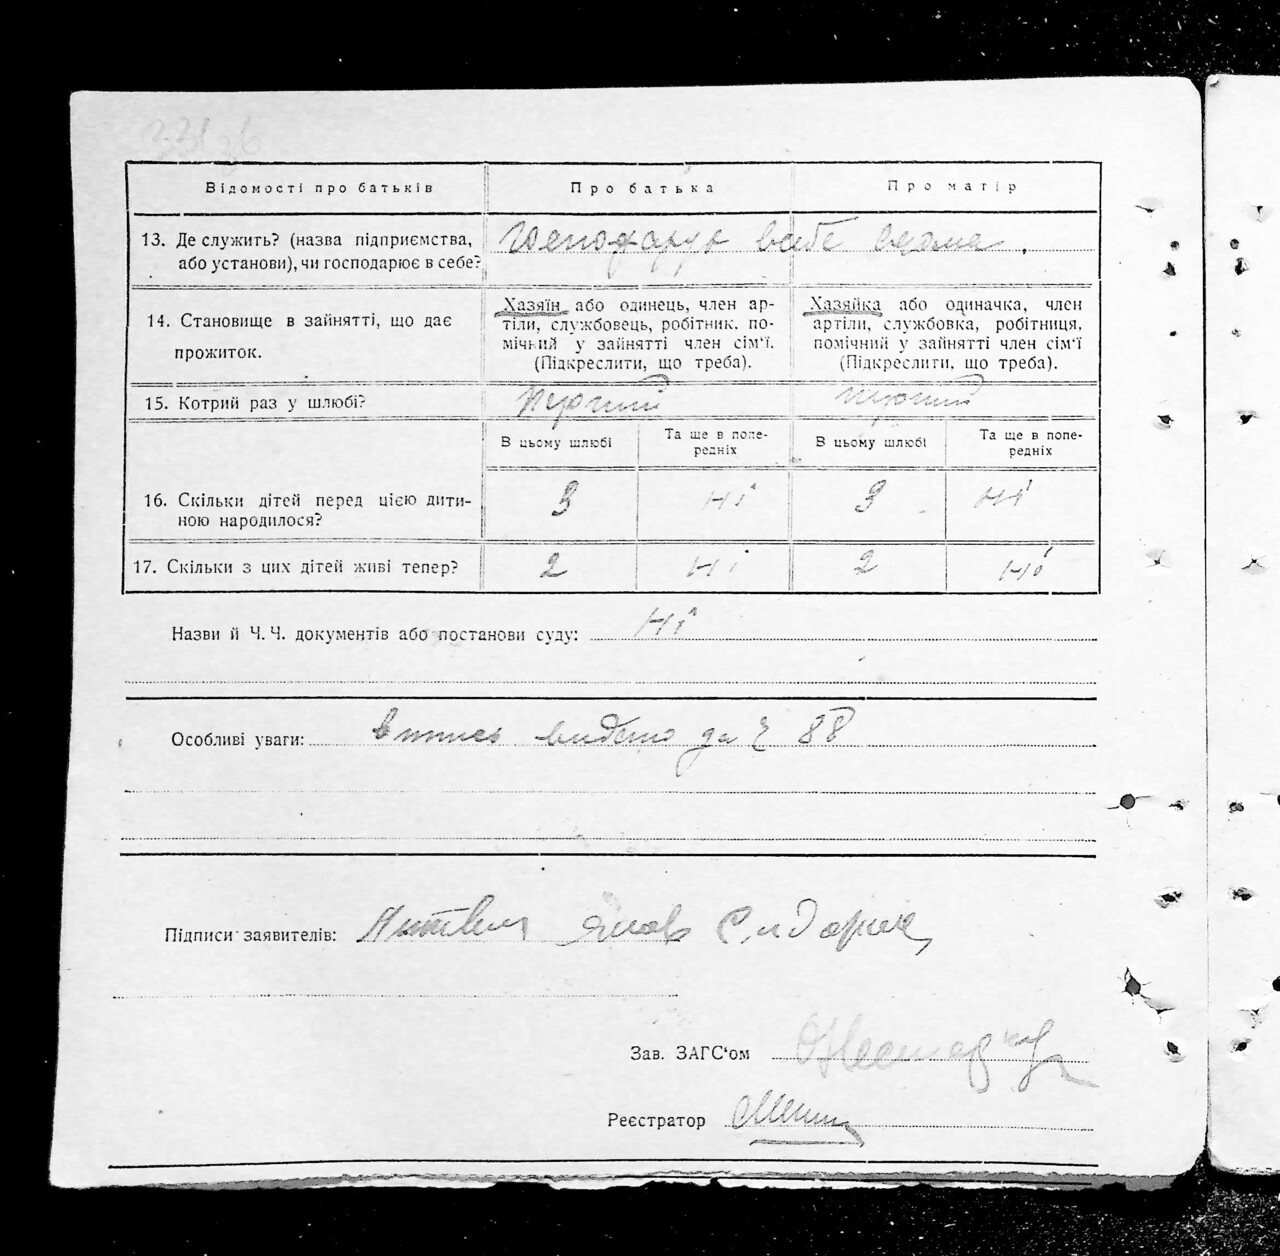 Відомості про батьків
Про батька
Про матір
13. Де служить? (назва підприємства,
або установи), чи господарює в себе?
14. Становище в зайнятті, що дає
прожиток.
Хазяїн або одинець, член ар-
тіли, службовець, робітник. по-
мічний у зайнятті член сім'ї.
(Підкреслити, що треба).
Хазяйка або одиначка, член
артіли, службовка, робітниця,
помічний у зайнятті член сім'ї
(Підкреслити, що треба).
15. Котрий раз у шлюбі?
В цьому шлюбі
Та ще в попе-
редніх
В цьому шлюбі
Та ще в попе-
редніх
16. Скільки дітей перед цією дити-
ною народилося?
3
Ні
3
Ні
17. Скільки з цих дітей живі тепер?
2
Ні
2
Ні
Назви й Ч. Ч. документів або постанови суду: Ні
Особливі уваги: видано за Ч 88
Підписи заявителів: Яков
Зав. ЗАГС'ом
Реєстратор